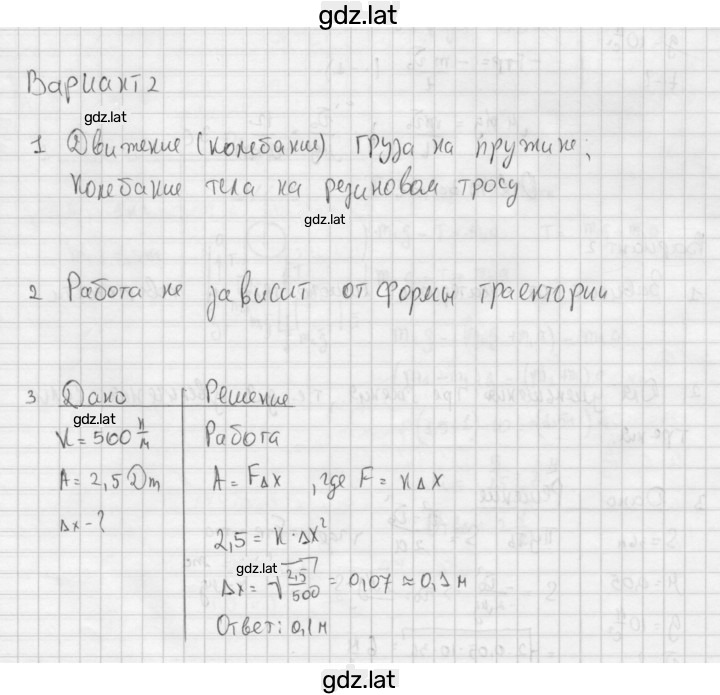 gdz.lat
Вариант 2
gdz.lat
1 Движение (колебание) груза на пружине;
колебание тела на резиновом тросу
gdz.lat
2 Работа не зависит от формы траектории
3 Дано Решение
gdz.lat
K = 500 н/м Работа
A = 2,5 Дж A = FΔx , где F = кΔx
Δx - ?
2,5 = к · Δx²
gdz.lat
Δx = √2,5/500 = 0,07 ≈ 0,1 м
Ответ: 0,1 м
gdz.lat